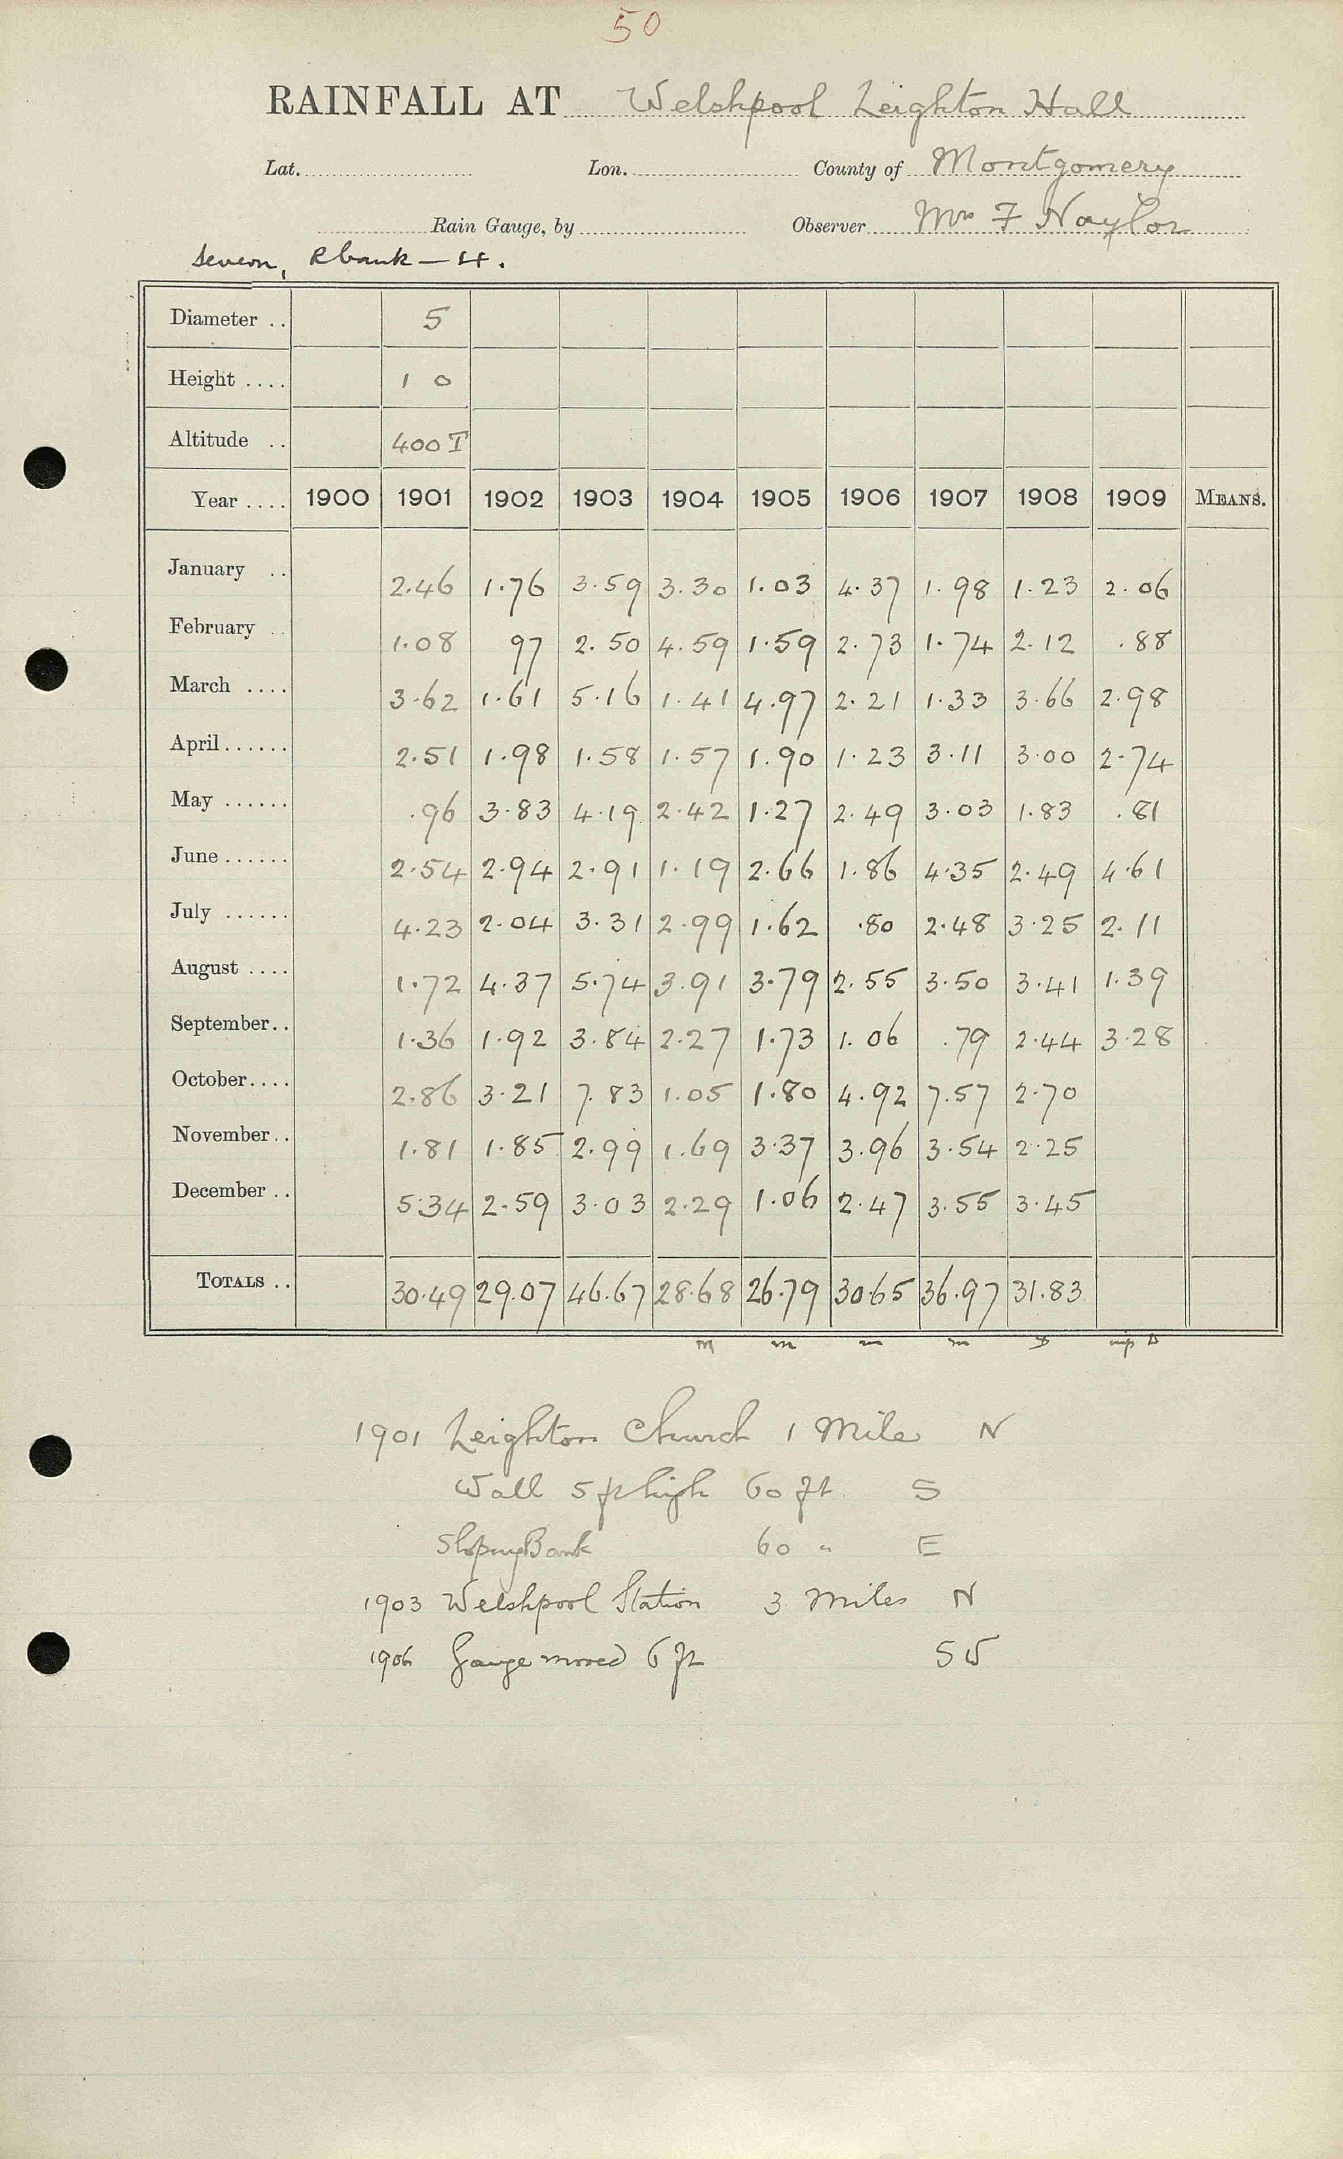 50
RAINFALL AT Welshpool Leighton Hall
Lat. Lon. County of Montgomery
Rain Gauge, by Observer Mrs F Naylor
Severn, R bank — 4.
Diameter .. 5
Height .... 1 0
Altitude .. 400 T
Year .... 1900 1901 1902 1903 1904 1905 1906 1907 1908 1909 MEANS.
January .. 2.46 1.76 3.59 3.30 1.03 4.37 1.98 1.23 2.06
February .. 1.08 97 2.50 4.59 1.59 2.73 1.74 2.12 .88
March .... 3.62 1.61 5.16 1.41 4.97 2.21 1.33 3.66 2.98
April...... 2.51 1.98 1.58 1.57 1.90 1.23 3.11 3.00 2.74
May ...... .96 3.83 4.19 2.42 1.27 2.49 3.03 1.83 .81
June...... 2.54 2.94 2.91 1.19 2.66 1.86 4.35 2.49 4.61
July ...... 4.23 2.04 3.31 2.99 1.62 .80 2.48 3.25 2.11
August .... 1.72 4.37 5.74 3.91 3.79 2.55 3.50 3.41 1.39
September.. 1.36 1.92 3.84 2.27 1.73 1.06 .79 2.44 3.28
October.... 2.86 3.21 7.83 1.05 1.80 4.92 7.57 2.70
November.. 1.81 1.85 2.99 1.69 3.37 3.96 3.54 2.25
December .. 5.34 2.59 3.03 2.29 1.06 2.47 3.55 3.45
TOTALS .. 30.49 29.07 46.67 28.68 26.79 30.65 36.97 31.83
M m m m D D
1901 Leighton Church 1 Mile N
Wall 5 ft high 60 ft S
Sloping Bank 60 " E
1903 Welshpool Station 3 Miles N
1906 Gauge moved 6 ft SW